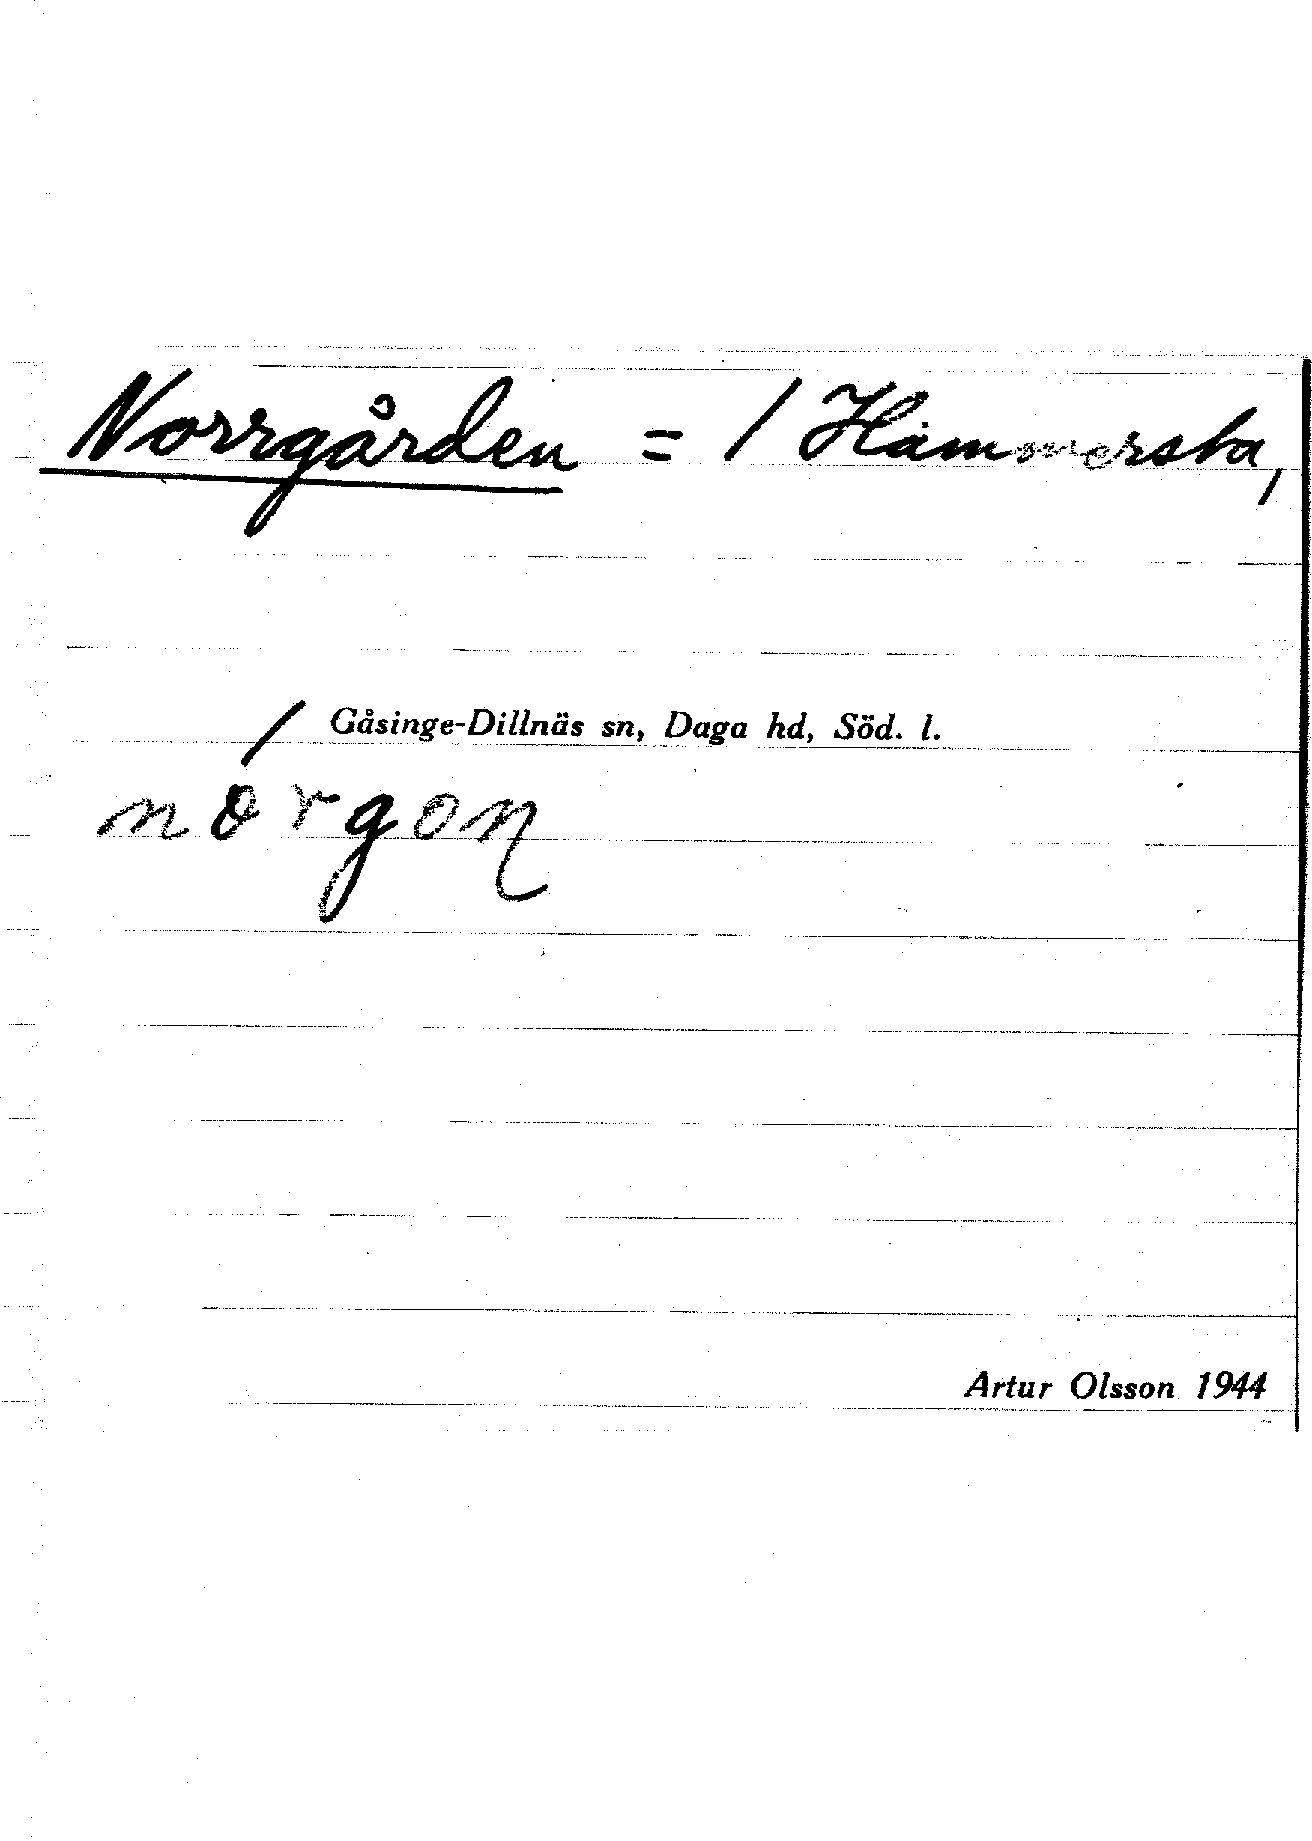 Norrgården = / Hammersta,
Gåsinge-Dillnäs sn, Daga hd, Söd. l.
/
norgon
Artur Olsson 1944